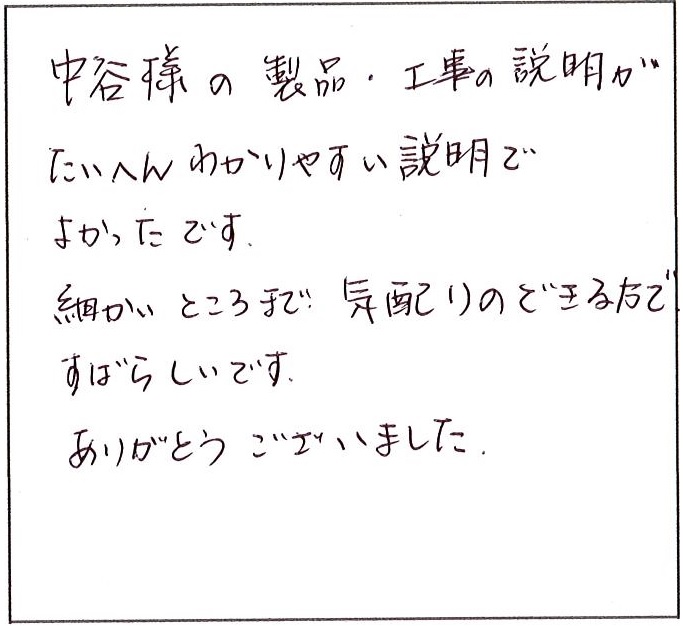 中谷様の製品・工事の説明が
たいへんわかりやすい説明で
よかったです.
細かいところまで気配りのできる方で
すばらしいです.
ありがとうございました.